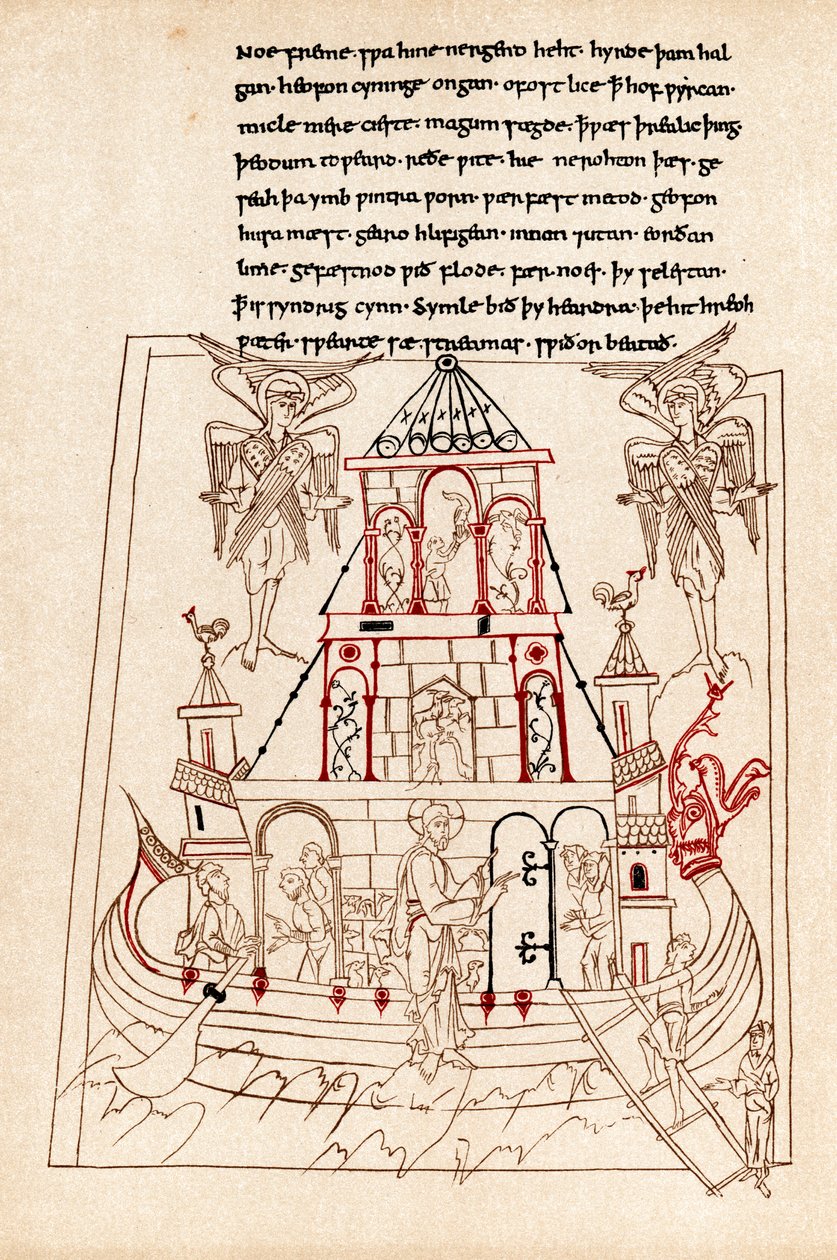 Noe freme. sƿa hine nergend heht. hyrde þam hal
gan. heofon cyninge ongan. ofost lice ꝥ hof ƿyrcan.
micle mere cieste. magum sægde. ꝥ ƿæs þrealic þing.
þeodum toƿeard. reðe ƿite. hie ne rohton þæs. ge
seah þa ymb ƿintra ƿorn. ƿærfæst metod. geofon
husa mæst. gearo hlifigean. innan ⁊utan. eorðan
lime. gefæstnod ƿið flode. fær. noes. þy selestan.
ꝥ is syndrig cynn. Symle bið þy heardra. þe hit hreoh
ƿæter. sƿearte sæ. streamas. sƿiðor beatað.